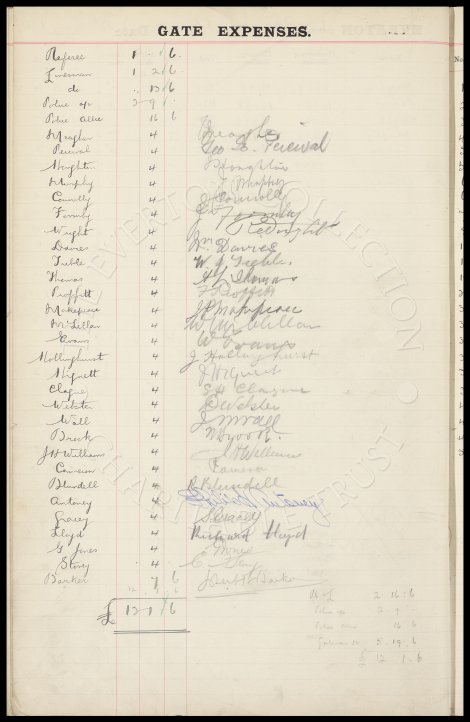 GATE EXPENSES.
Referee 1 . 1 . 6
Linesman 1 . 2 . 6
do . 13 . 6
Police exp 2 . 9 .
Police Allce 16 6
Meagher 4 Meagher
Percival 4 Geo G. Percival
Houghton 4 Houghton
Murphy 4 Murphy
Connolly 4 J Connolly
Formby 4 Formby
Wright 4 R Wright
Davies 4 Wm Davies
Tichle 4 W J Tickle
Thomas 4 Thomas
Proffitt 4 Proffitt
Makepeace 4 Makepeace
McLellan 4 W McLellan
Evans 4 W Evans
Hollinghurst 4 J Hollinghurst
Hignett 4 J Hignett
Clague 4 Clague
Webster 4 Webster
Wall 4 J W Wall
Brock 4
J H Williams 4 J H Williams
Cameron 4 Cameron
Blundell 4 R Blundell
Antoney 4 Antoney
Gracey 4 S Gracey
Lloyd 4 Richard Lloyd
G Jones 4 Jones
Storey 4 C. Storey
Barker 7 6 Barker
£ 12 1 6
2 16 . 6
Police exp 2 . 9 .
Police Allce 16 6
Gatemen 5 . 19 . 6
£ 12 . 1 . 6
EVERTON COLLECTION
CHARITABLE TRUST